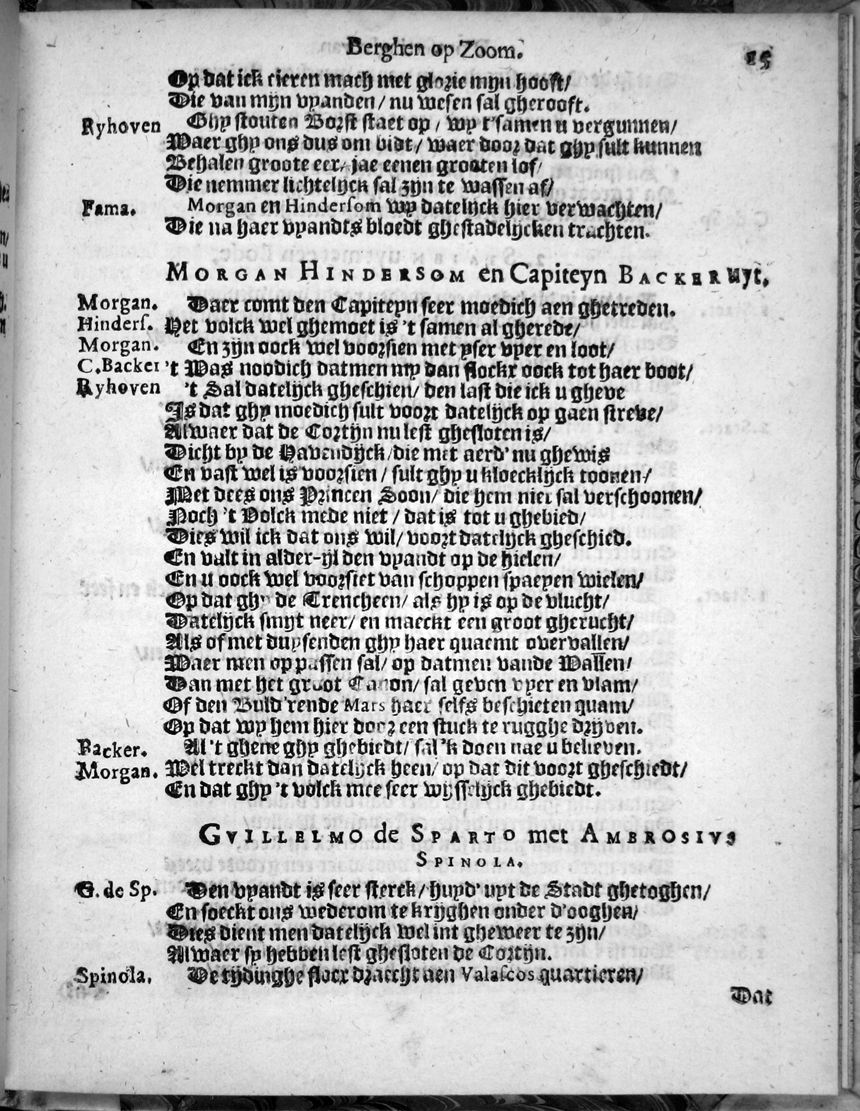 Berghen op Zoom. 15
Op dat ick cieren mach met glorie mijn hooft/
Die van mijn vyanden/ nu wesen sal gherooft.
Ryhoven Ghy stouten Borst staet op/ wy t'samen u vergunnen/
Waer ghy ons dus om bidt/ waer door dat ghy sult kunnen
Behalen groote eer/ jae eenen grooten lof/
Die nemmer lichtelijck sal zijn te wassen af/
Fama. Morgan en Hindersom wy datelijck hier verwachten/
Die na haer vyandts bloedt ghestadelijcken trachten.
MORGAN HINDERSOM en Capiteyn BACKER uyt.
Morgan. Daer comt den Capiteyn seer moedich aen ghetreden.
Hinders. Het volck wel ghemoet is 't samen al gherede/
Morgan. En zijn oock wel voorsien met yser vyer en loot/
C.Backer 't Was noodich datmen my dan stockx oock tot haer boot/
Ryhoven 't Sal datelijck gheschien/ den last die ick u gheve
Is dat ghy moedich sult voort datelijck op gaen streve/
Alwaer dat de Cortijn nu lest ghesloten is/
Dicht by de Havendijck/ die met aerd' nu ghewis
En vast wel is voorsien/ sult ghy u kloecklijck toonen/
Met dees ons Princen Soon/ die hem niet sal verschoonen/
Noch 't Volck mede niet/ dat is tot u ghebied/
Dies wil ick dat ons wil/ voort datelijck gheschied.
En valt in alder-ijl den vyandt op de hielen/
En u oock wel voorsiet van schoppen spaeyen wielen/
Op dat ghy de Trencheen/ als hy is op de vlucht/
Datelijck smijt neer/ en maeckt een groot gherucht/
Als of met duysenden ghy haer quaemt overvallen/
Waer men op passen sal/ op datmen vande Wallen/
Dan met het groot Canon/ sal geven vyer en vlam/
Of den Buld'rende Mars haer selfs beschieten quam/
Op dat wy hem hier door een stuck te rugghe drijven.
Backer. Al 't ghene ghy ghebiedt/ sal 'k doen nae u believen.
Morgan. Wel treckt dan datelijck heen/ op dat dit voort gheschiedt/
En dat ghy 't volck mee seer wijsselijck ghebiedt.
GVILLELMO de SPARTO met AMBROSIVS
SPINOLA.
G. de Sp. Den vyandt is seer sterck/ huyd' uyt de Stadt ghetoghen/
En soeckt ons wederom te krijghen onder d'ooghen/
Dies dient men datelijck wel int gheweer te zijn/
Alwaer sy hebben lest ghesloten de Cortijn.
Spinola. De tijdinghe stocx draecht aen Valascos quartieren/
Dat